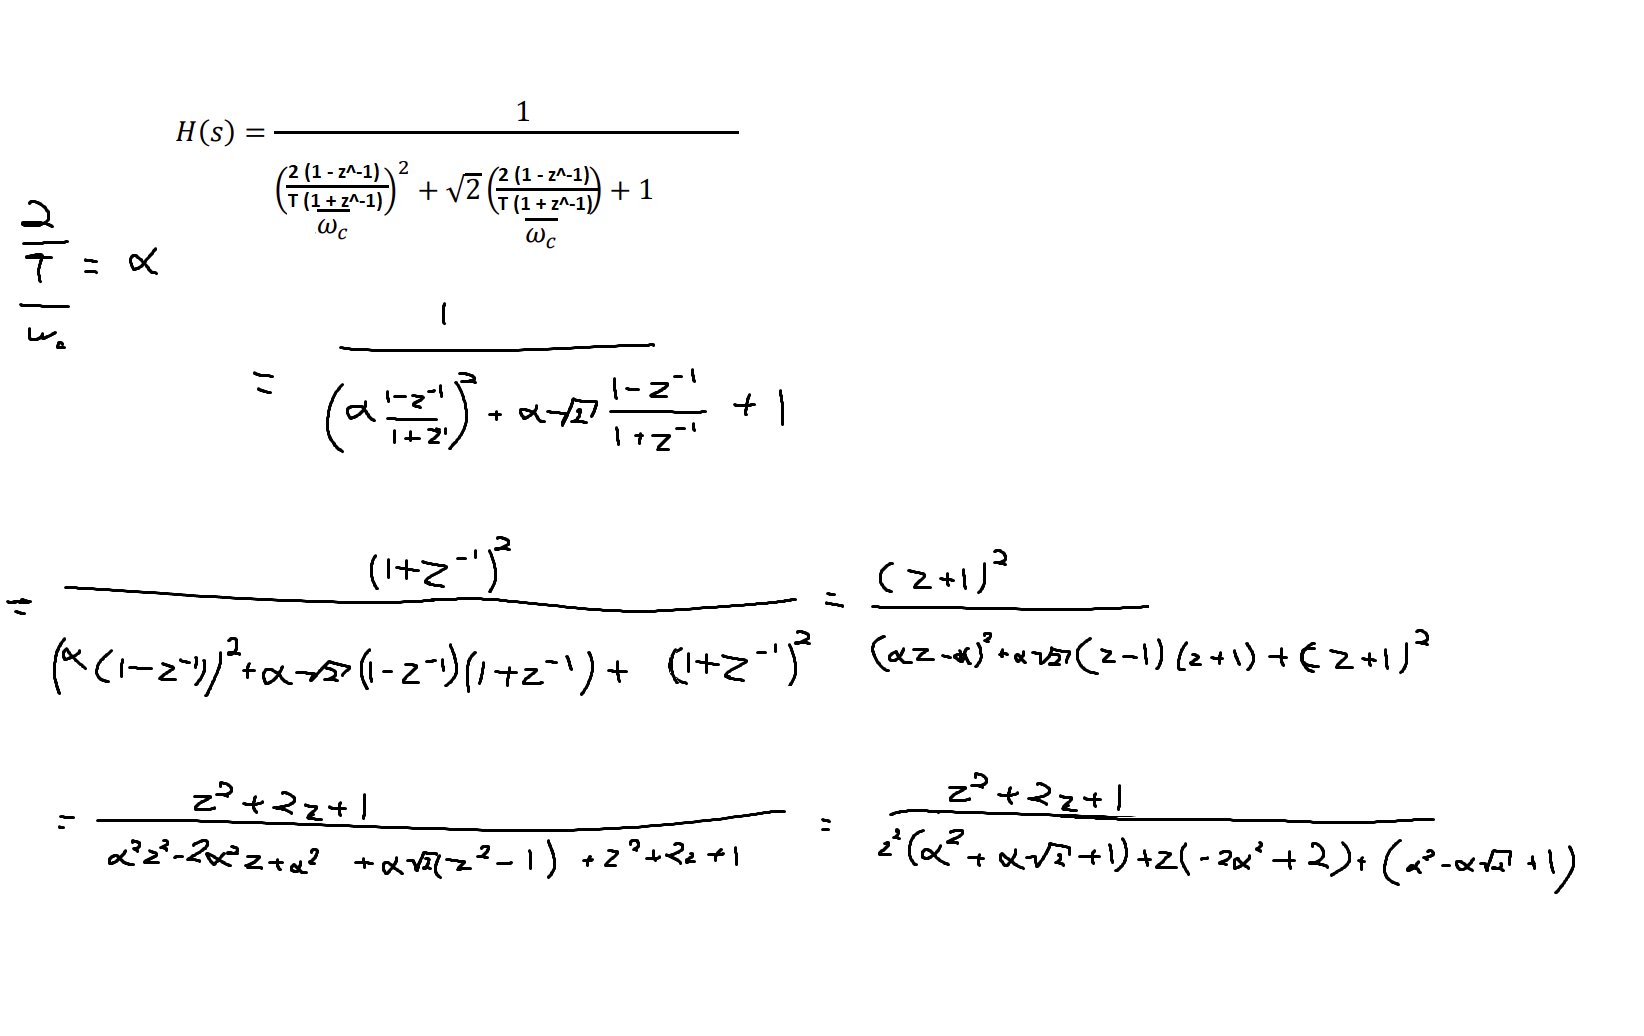 H(s) = 1 / ( ( (2 (1 - z^-1) / T (1 + z^-1)) / ω_c )² + √2 ( (2 (1 - z^-1) / T (1 + z^-1)) / ω_c ) + 1 )
(2/T) / w_c = α
= 1 / ( (α (1-z⁻¹)/(1+z⁻¹))² + α√2 (1-z⁻¹)/(1+z⁻¹) + 1 )
= (1+z⁻¹)² / ( (α(1-z⁻¹))² + α√2(1-z⁻¹)(1+z⁻¹) + (1+z⁻¹)² ) = (z+1)² / ( (αz-α)² + α√2(z-1)(z+1) + (z+1)² )
= z²+2z+1 / ( α²z²-2α²z+α² + α√2(z²-1) + z²+2z+1 ) = z²+2z+1 / ( z²(α²+α√2+1)+z(-2α²+2)+(α²-α√2+1) )